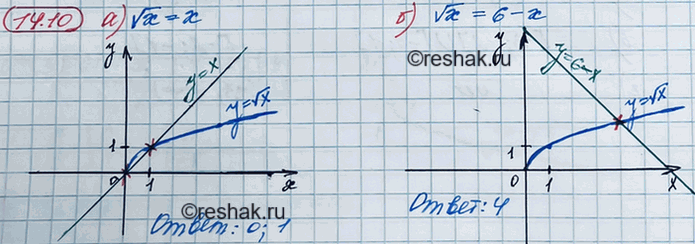 14.10 а) √x = x
y
y=x
y=√x
1
0 1 x
©reshak.ru
Ответ: 0; 1
б) √x = 6-x
y
y=6-x
©reshak.ru
y=√x
1
0 1 x
Ответ: 4